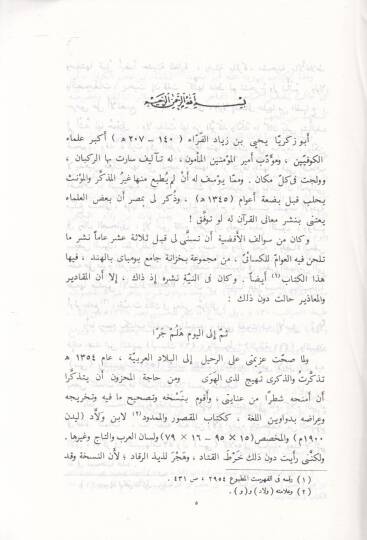 بسم الله الرحمن الرحيم
أبو زكريّا يحيى بن زياد الفرّاء ( ١٤٠ – ٢٠٧ ه‍ ) أكبر علماء
الكوفيّين ، ومؤدّب أمير المؤمنين المأمون ، له تآليف سارت بها الركبان ،
وولجت فى كلّ مكان . وممّا يوسف له أنْ لم يُطبع منها غيرُ المذكَّر والمؤنّث
بحلب قبل بضعة أعوام ( ١٣٤٥ ه‍ ) ، وذُكر لى بمصر أن بعض العلماء
يعتنى بنشر معانى القرآن له لو توفّق !
وكان من سوالف الأقضية أن تسنَّى لى قبل ثلاثة عشر عاماً نشر ما
تلحن فيه العوامّ للكسائىّ ، من مجموعة بخزانة جامع بومباى بالهند ، فيها
هذا الكتاب(١) أيضاً . وكان فى النيّة نشره إذ ذاك ، إلا أن المقادير
والمعاذير حالت دون ذلك :
ثمّ إلى اليوم هَلُمّ جَرّا
ولما صحّت عزيمتى على الرحيل إلى البلاد العربيّة ، عام ١٣٥٤ ه‍
تذكّرتُ والذكرى تَهيج لذى الهَوَى ومن حاجة المحزون أن يتذكّرا
أن أمنحه شطراً من عنايتى ، وأقوم بنَسْخه وتصحيح ما فيه وتخريجه
وعِراضه بدواوين اللغة ، ككتاب المقصور والممدود(٢) لابن ولّاد (ليدن
١٩٠٠م) والمخصص (١٥ × ٩٥ – ١٦ × ٧٩) ولسان العرب والتاج وغيرها .
ولكنّى رأيت دون ذلك خَرْطَ القتاد ، وهَجْرَ لذيذ الرقاد ؛ لأن النسخة وقد
( ١ ) رقمه فى الفهرست المطبوع ٢٩٥٤ ، ص ٤٣١ .
( ٢ ) وعلامته (ولاد) و ( و ) .
٥